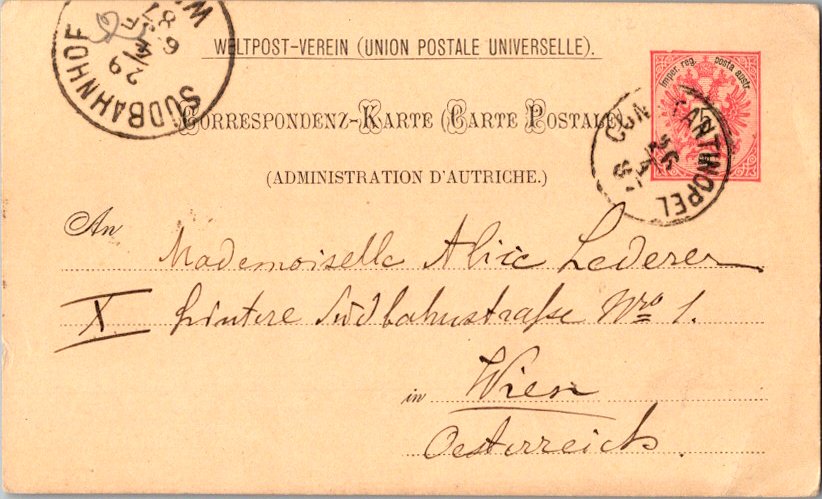 WELTPOST-VEREIN (UNION POSTALE UNIVERSELLE).
CORRESPONDENZ-KARTE (CARTE POSTALE)
(ADMINISTRATION D'AUTRICHE.)
Imper. reg. posta austr.
5
SÜDBAHNHOF
29
6
87
CONSTANTINOPEL
26
4
An
Mademoiselle Alice Lederer
X hintere Südbahnstraße Nro 1.
in Wien
Oesterreich.